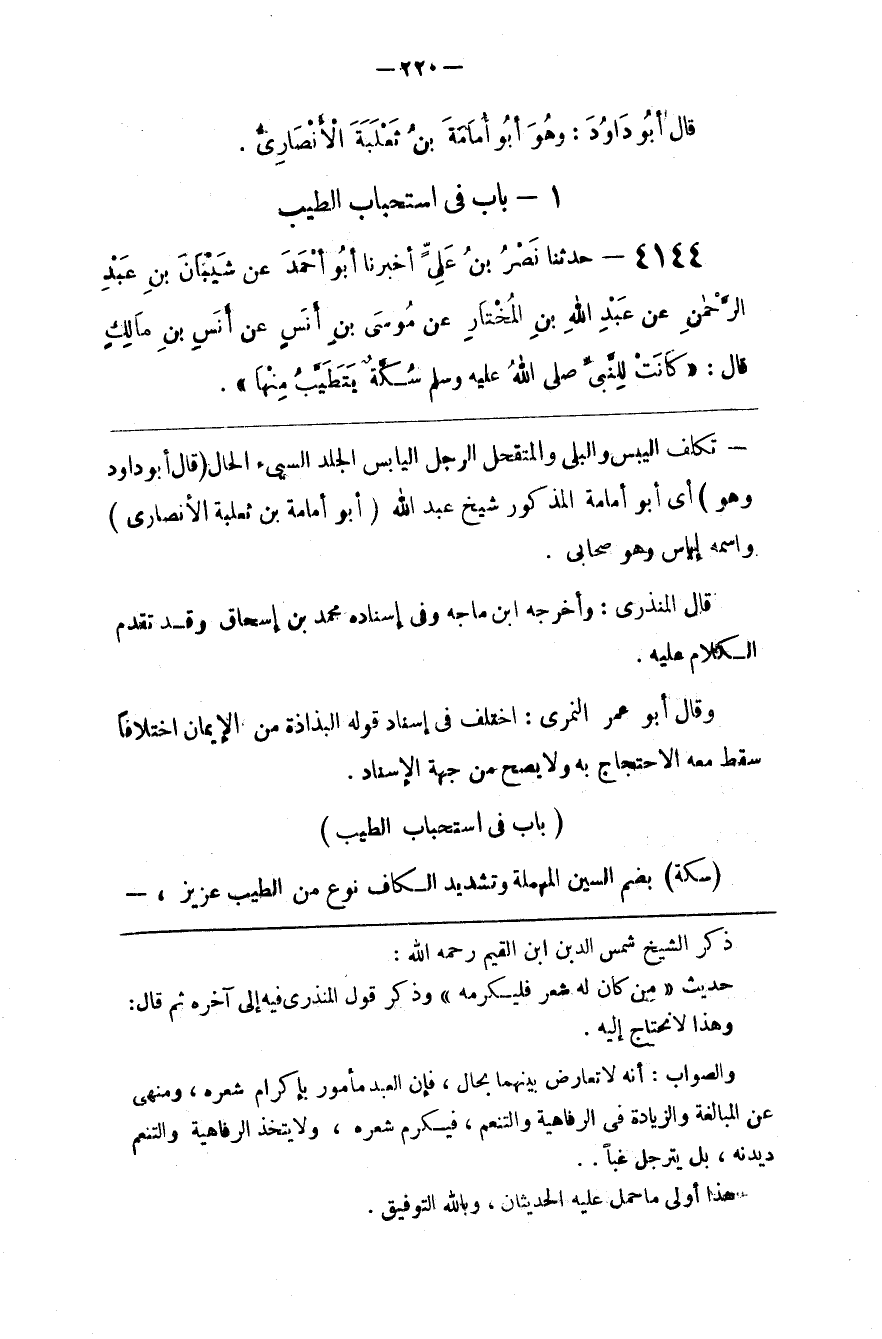 — ٢٢٠ —
قال أبُو دَاوُدَ : وهُوَ أبُو أُمَامَةَ بنُ ثَعْلَبَةَ الْأَنْصَارِىُّ .
١ — باب فى استحباب الطيب
٤١٤٤ — حدثنا نَصْرُ بنُ عَلِيٍّ أخبرنا أبُو أحْمَدَ عن شَيْبَانَ بنِ عَبْدِ
الرَّحْمٰنِ عن عَبْدِ اللهِ بنِ المُخْتَارِ عن مُوسَى بنِ أنَسٍ عن أنَسِ بنِ مَالِكٍ
قال : « كَانَتْ لِلنَّبىِّ صلى اللهُ عليه وسلم سُكَّةٌ يَتَطَيَّبُ مِنْهَا » .
— تكلف اليبس والبلى والمتقحل الرجل اليابس الجلد السيىء الحال (قال أبو داود
وهو ) أى أبو أمامة المذكور شيخ عبد الله ( أبو أمامة بن ثعلبة الأنصارى )
واسمه إياس وهو صحابى .
قال المنذرى : وأخرجه ابن ماجه وفى إسناده محمد بن إسحاق وقد تقدم
الكلام عليه .
وقال أبو عمر النمرى : اختلف فى إسناد قوله البذاذة من الإيمان اختلافاً
سقط معه الاحتجاج به ولا يصح من جهة الإسناد .
( باب فى استحباب الطيب )
(سكة) بضم السين المهملة وتشديد الكاف نوع من الطيب عزيز ، —
ذكر الشيخ شمس الدين ابن القيم رحمه الله :
حديث « من كان له شعر فليكرمه » وذكر قول المنذرى فيه إلى آخره ثم قال :
وهذا لا نحتاج إليه .
والصواب : أنه لا تعارض بينهما بحال ، فإن العبد مأمور بإكرام شعره ، ومنهى
عن المبالغة والزيادة فى الرفاهية والتنعم ، فيكرم شعره ، ولا يتخذ الرفاهية والتنعم
ديدنه ، بل يترجل غباً . .
هذا أولى ما حمل عليه الحديثان ، وبالله التوفيق .